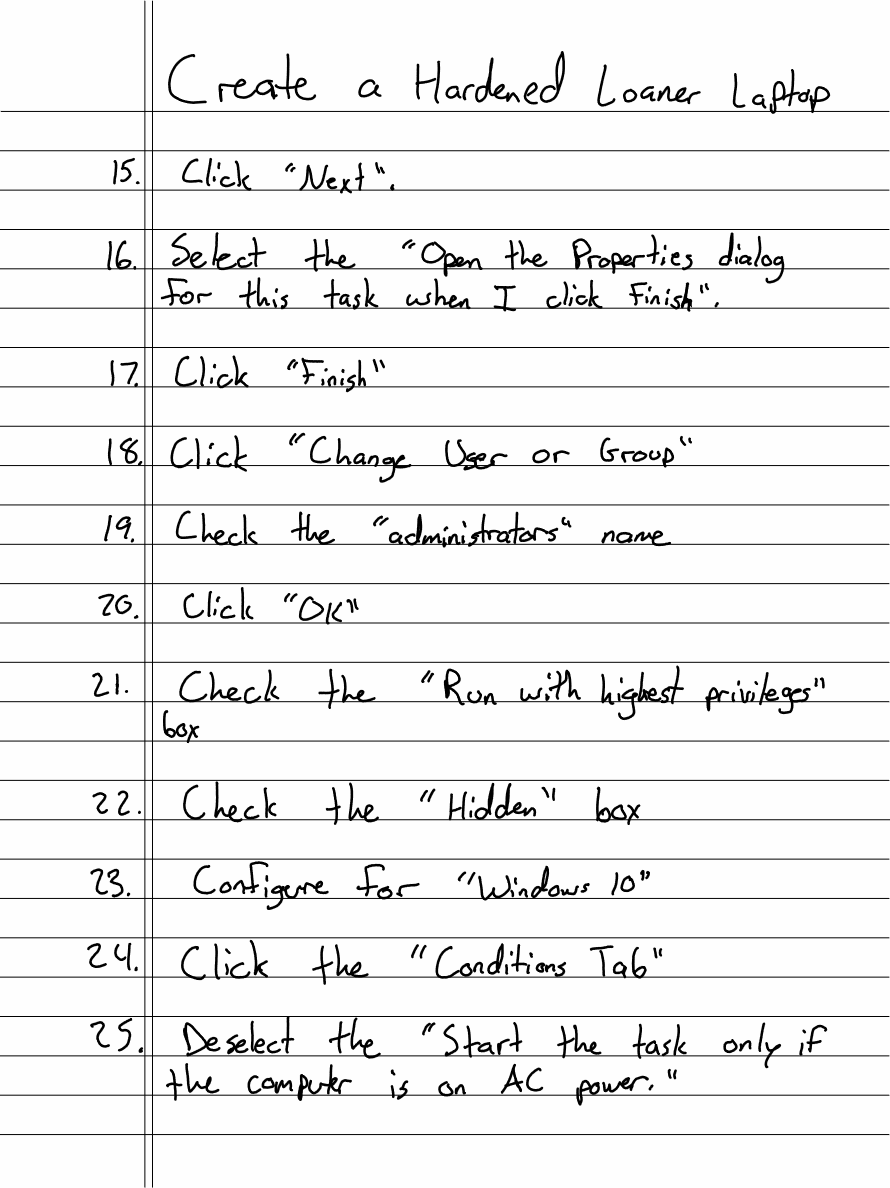 Create a Hardened Loaner Laptop
15. Click "Next".
16. Select the "Open the Properties dialog
for this task when I click Finish".
17. Click "Finish"
18. Click "Change User or Group"
19. Check the "administrators" name
20. Click "OK"
21. Check the "Run with highest privileges"
box
22. Check the "Hidden" box
23. Configure for "Windows 10"
24. Click the "Conditions Tab"
25. Deselect the "Start the task only if
the computer is on AC power."